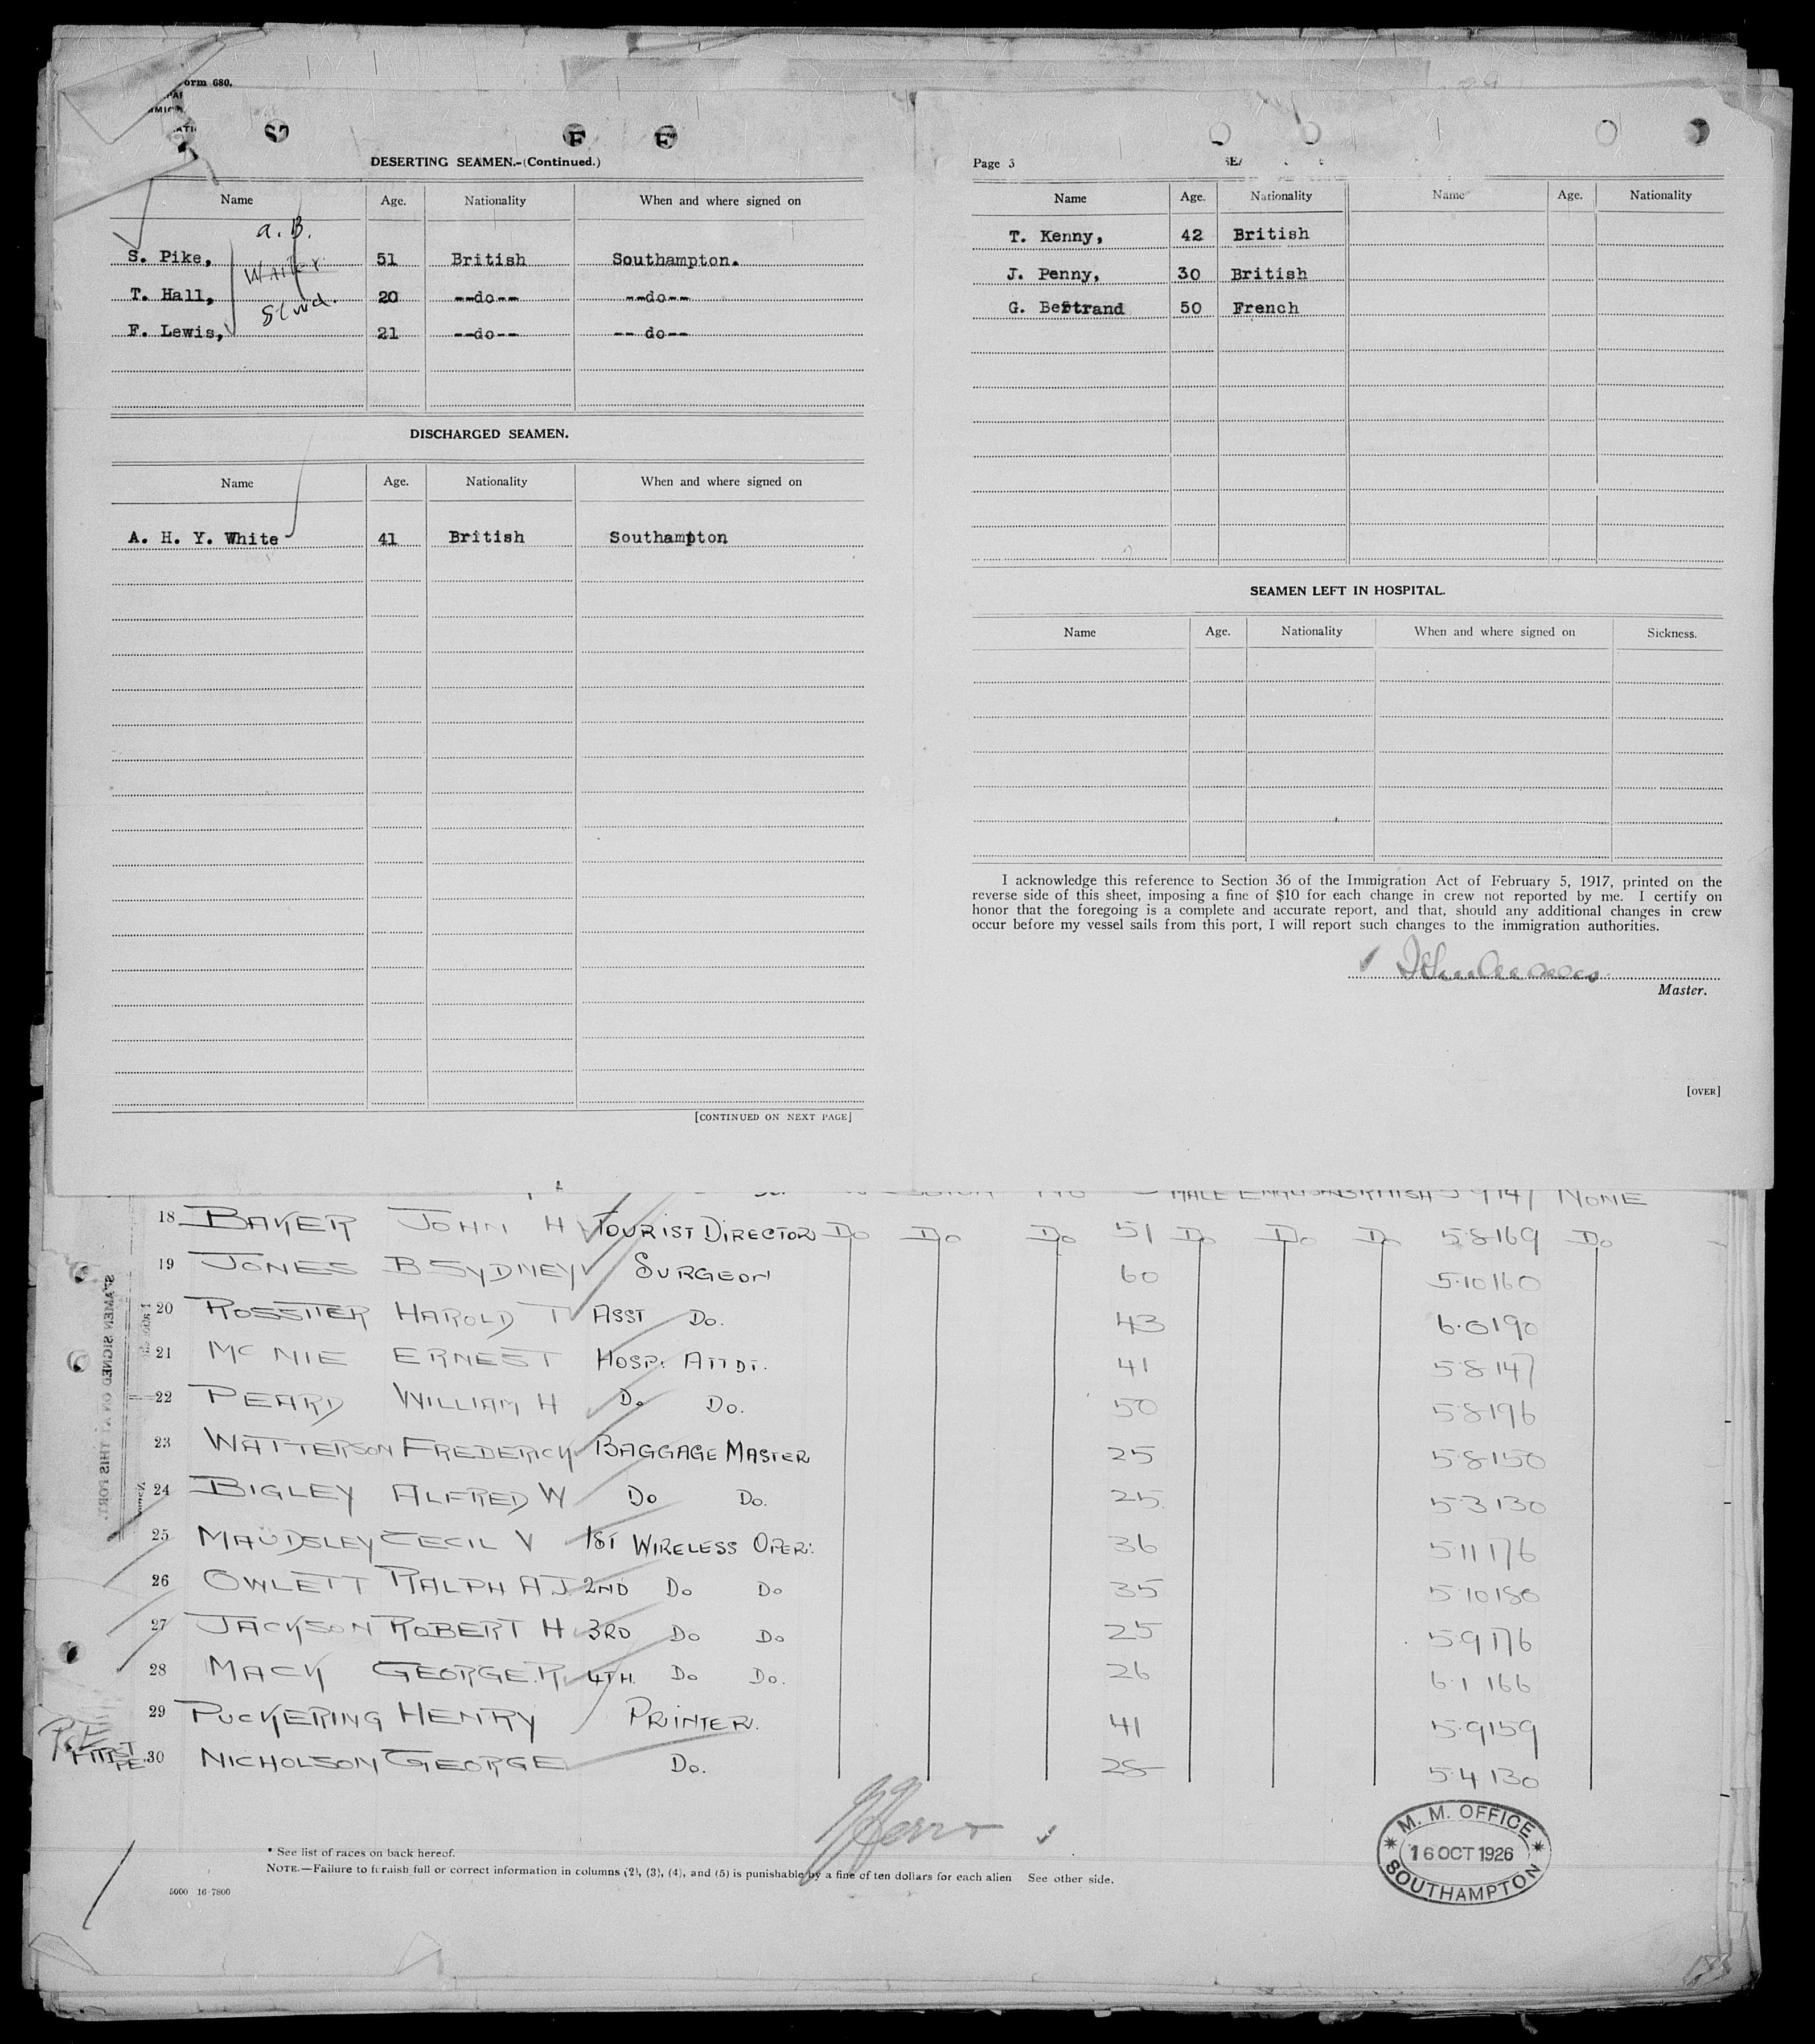 orm 680.
DESERTING SEAMEN.-(Continued.)
Name Age. Nationality When and where signed on
a.B.
S. Pike, 51 British Southampton.
Waiter
T. Hall, 20 --do-- --do--
Stwd.
F. Lewis, 21 --do-- -- do--
DISCHARGED SEAMEN.
Name Age. Nationality When and where signed on
A. H. Y. White 41 British Southampton
[CONTINUED ON NEXT PAGE]
Page 3
Name Age. Nationality Name Age. Nationality
T. Kenny, 42 British
J. Penny, 30 British
G. Bertrand 50 French
SEAMEN LEFT IN HOSPITAL.
Name Age. Nationality When and where signed on Sickness.
I acknowledge this reference to Section 36 of the Immigration Act of February 5, 1917, printed on the
reverse side of this sheet, imposing a fine of $10 for each change in crew not reported by me. I certify on
honor that the foregoing is a complete and accurate report, and that, should any additional changes in crew
occur before my vessel sails from this port, I will report such changes to the immigration authorities.
Master.
[OVER]
MALE ENGLISH BRITISH 5 9 147 NONE
18 BAKER JOHN H TOURIST DIRECTOR Do Do Do 51 Do Do Do 5 8 169 Do
19 JONES B SYDNEY SURGEON 60 5·10 160
20 ROSSITER HAROLD T ASST Do. 43 6·0 190
21 MC NIE ERNEST HOSP. ATTDT. 41 5 8 147
22 PEARD WILLIAM H Do Do. 50 5 8 196
23 WATTERSON FREDERICK BAGGAGE MASTER 25 5·8 150
24 BIGLEY ALFRED W Do Do. 25 5·3 130
25 MAUDSLEY CECIL V 1ST WIRELESS OPER: 36 5 11 176
26 OWLETT RALPH A J. 2ND Do Do 35 5·10 180
27 JACKSON ROBERT H 3RD Do Do 25 5·9 176
28 MACK GEORGE. R. 4TH. Do Do. 26 6·1 166
29 PUCKERING HENRY PRINTER. 41 5·9 159
30 NICHOLSON GEORGE Do. 28 5·4 130
* See list of races on back hereof.
NOTE.—Failure to furnish full or correct information in columns (2), (3), (4), and (5) is punishable by a fine of ten dollars for each alien See other side.
5000 16-7800
M. M. OFFICE
16 OCT 1926
SOUTHAMPTON